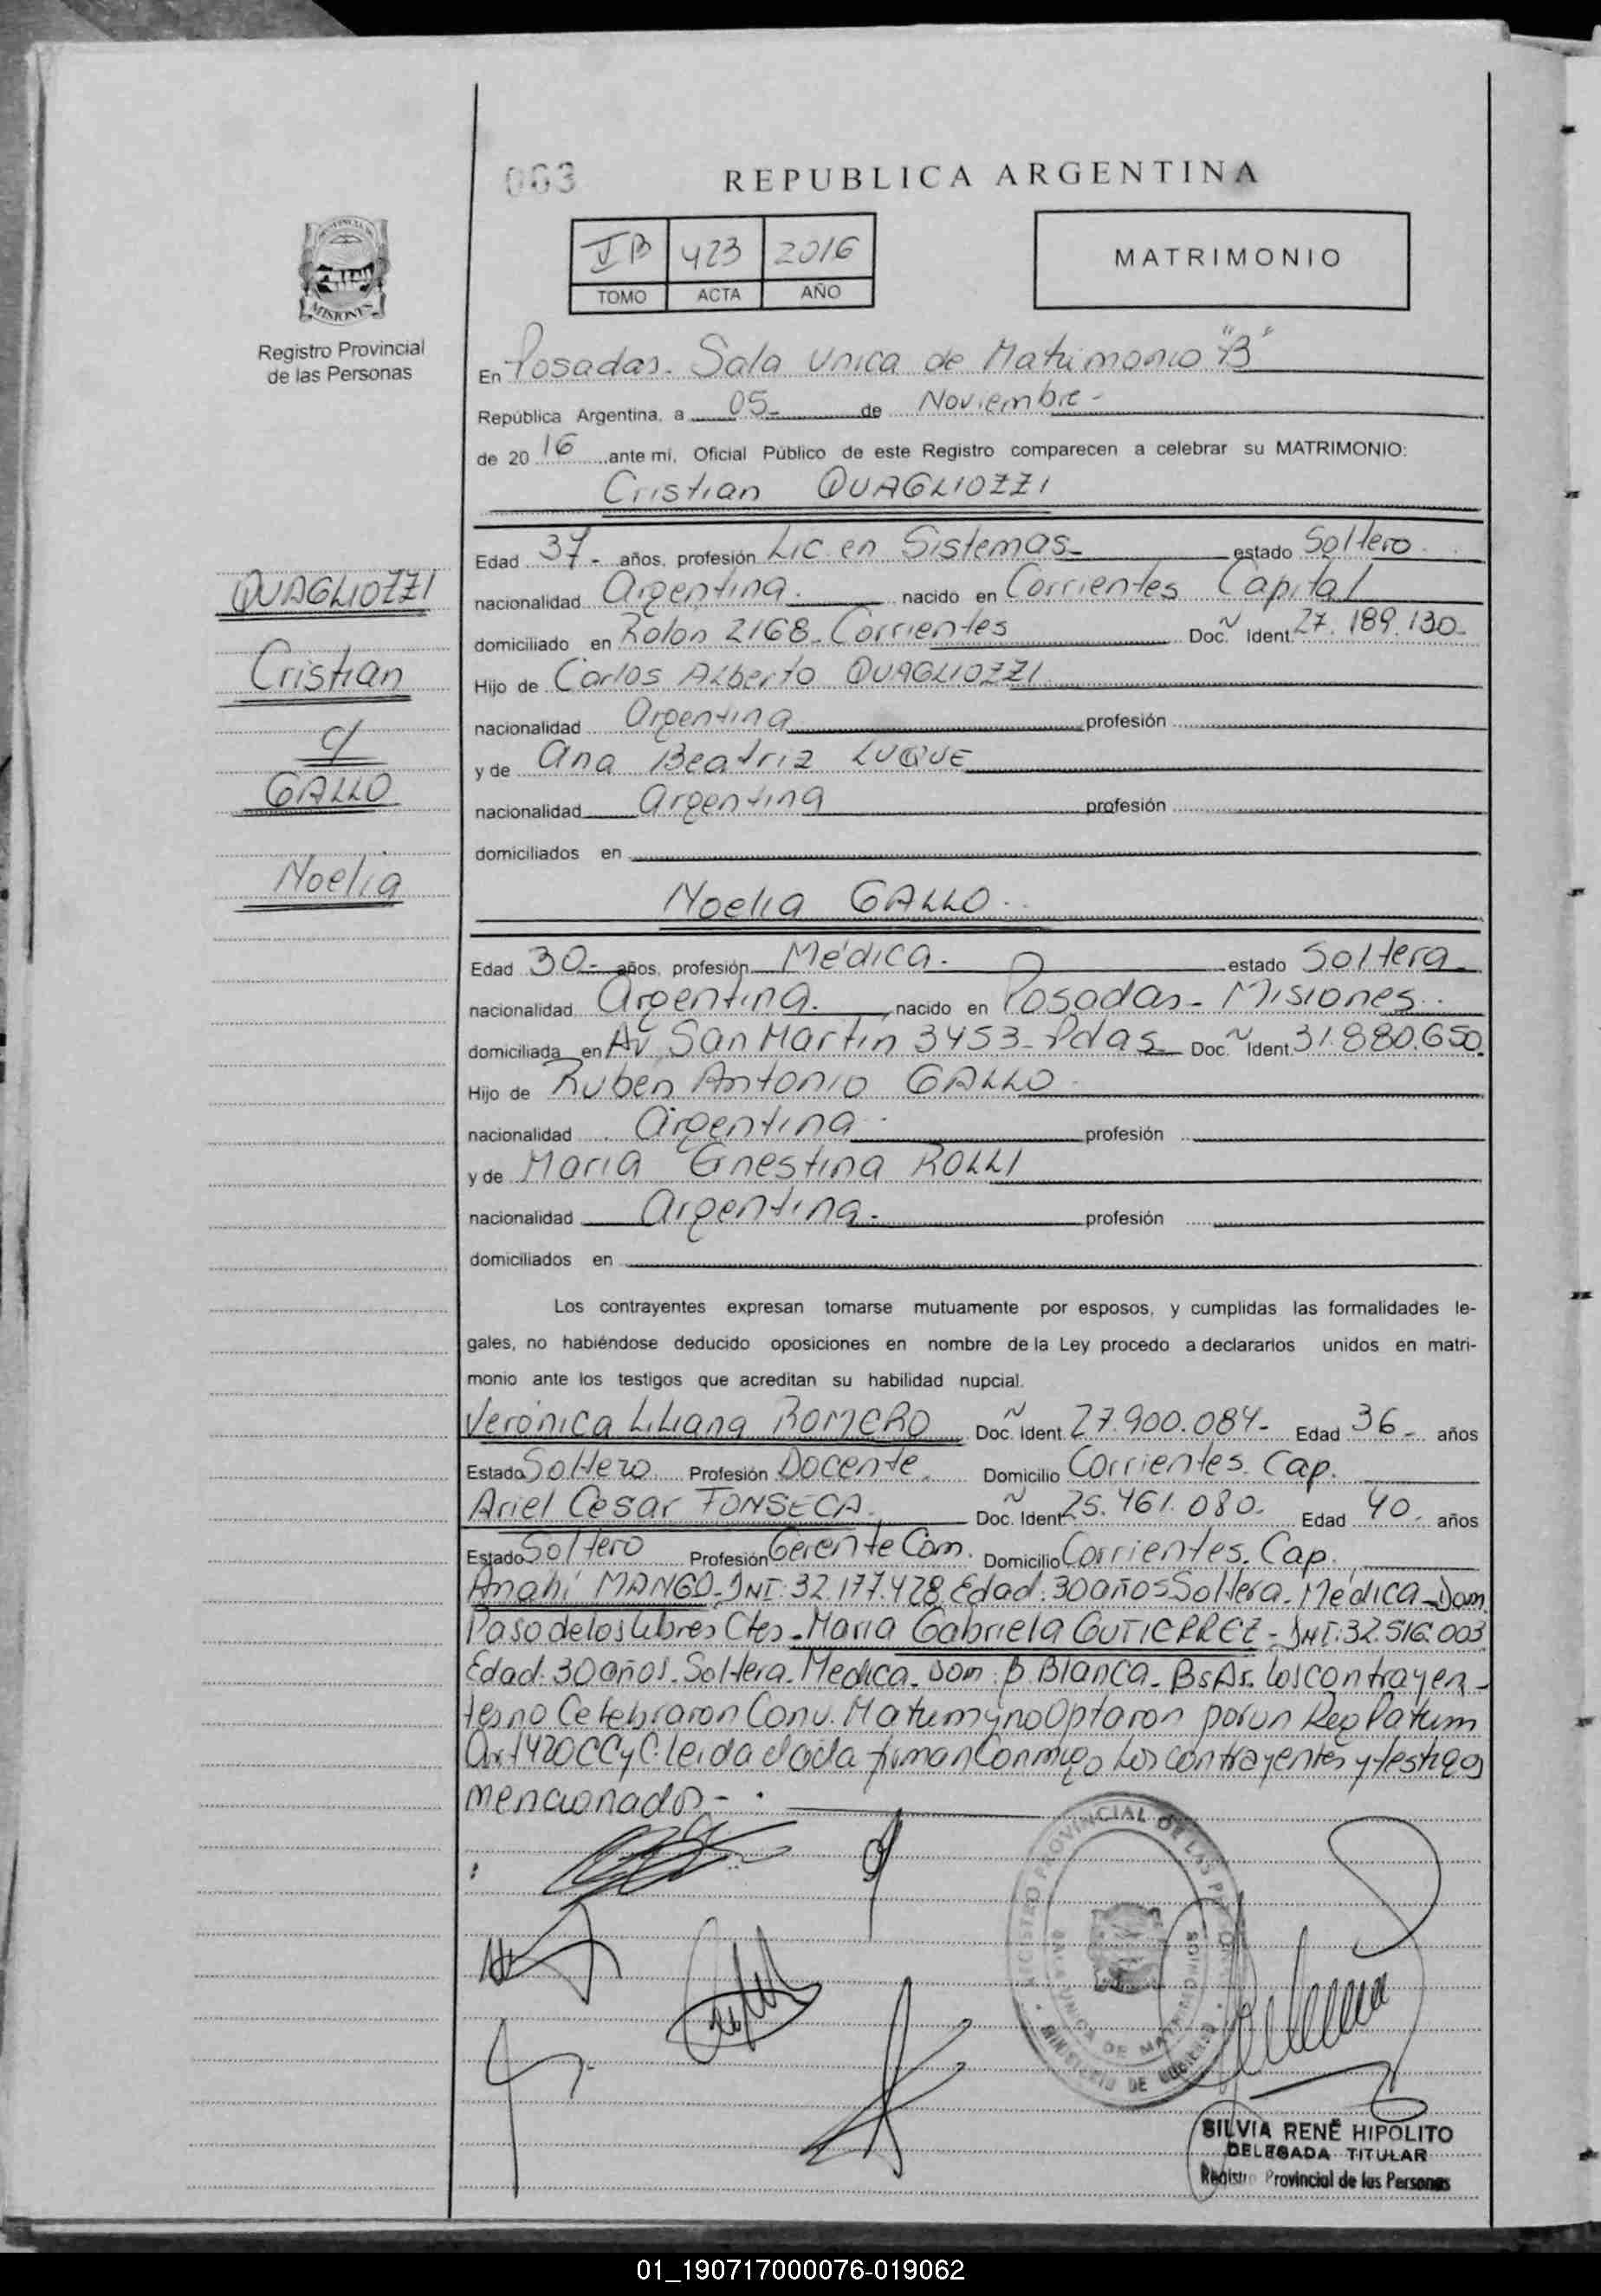 003
REPUBLICA ARGENTINA
IB 423 2016
TOMO ACTA AÑO
MATRIMONIO
MISIONES
Registro Provincial
de las Personas
En Posadas. Sala Unica de Matrimonio "B"
República Argentina, a 05 de Noviembre
de 20 16 ante mí, Oficial Público de este Registro comparecen a celebrar su MATRIMONIO:
Cristian QUAGLIOZZI
Edad 37 años, profesión Lic. en Sistemas estado Soltero
nacionalidad Argentina. nacido en Corrientes Capital
domiciliado en Rolón 2168. Corrientes Doc. Ident. 27.189.130
Hijo de Carlos Alberto QUAGLIOZZI
nacionalidad Argentina profesión
y de Ana Beatriz LUQUE
nacionalidad Argentina profesión
domiciliados en
QUAGLIOZZI
Cristian
c/
GALLO
Noelia
Noelia GALLO
Edad 30 años, profesión Médica. estado Soltera
nacionalidad Argentina. nacido en Posadas - Misiones.
domiciliada en Av. San Martin 3453 - Pdas Doc. Ident. 31.880.650.
Hijo de Ruben Antonio GALLO
nacionalidad Argentina profesión
y de Maria Ernestina ROLLI
nacionalidad Argentina. profesión
domiciliados en
Los contrayentes expresan tomarse mutuamente por esposos, y cumplidas las formalidades le-
gales, no habiéndose deducido oposiciones en nombre de la Ley procedo a declararlos unidos en matri-
monio ante los testigos que acreditan su habilidad nupcial.
Verónica Liliana ROMERO Doc. Ident. 27.900.084 Edad 36 años
Estado Soltero Profesión Docente. Domicilio Corrientes. Cap.
Ariel Cesar FONSECA. Doc. Ident. 25.461.080. Edad 40 años
Estado Soltero Profesión Gerente Com. Domicilio Corrientes. Cap.
Anahí MANGO - DNI: 32.177.428. Edad: 30 años Soltera. Médica - Dom
Paso de los Libres Ctes - Maria Gabriela GUTIERREZ - DNI: 32.516.003
Edad: 30 años. Soltera. Medica. Dom: B. Blanca - Bs As. Los contrayen-
tes no Celebraron Conv. Matrim y no Optaron por un Reg Patrim
Art 420 CCyC. leida el acta firman Conmigo Los contrayentes y testigos
mencionados - .
REGISTRO PROVINCIAL DE LAS PERSONAS
SALA UNICA DE MATRIMONIOS
MINISTERIO DE GOBIERNO
SILVIA RENÉ HIPOLITO
DELEGADA TITULAR
Registro Provincial de las Personas
01_190717000076-019062